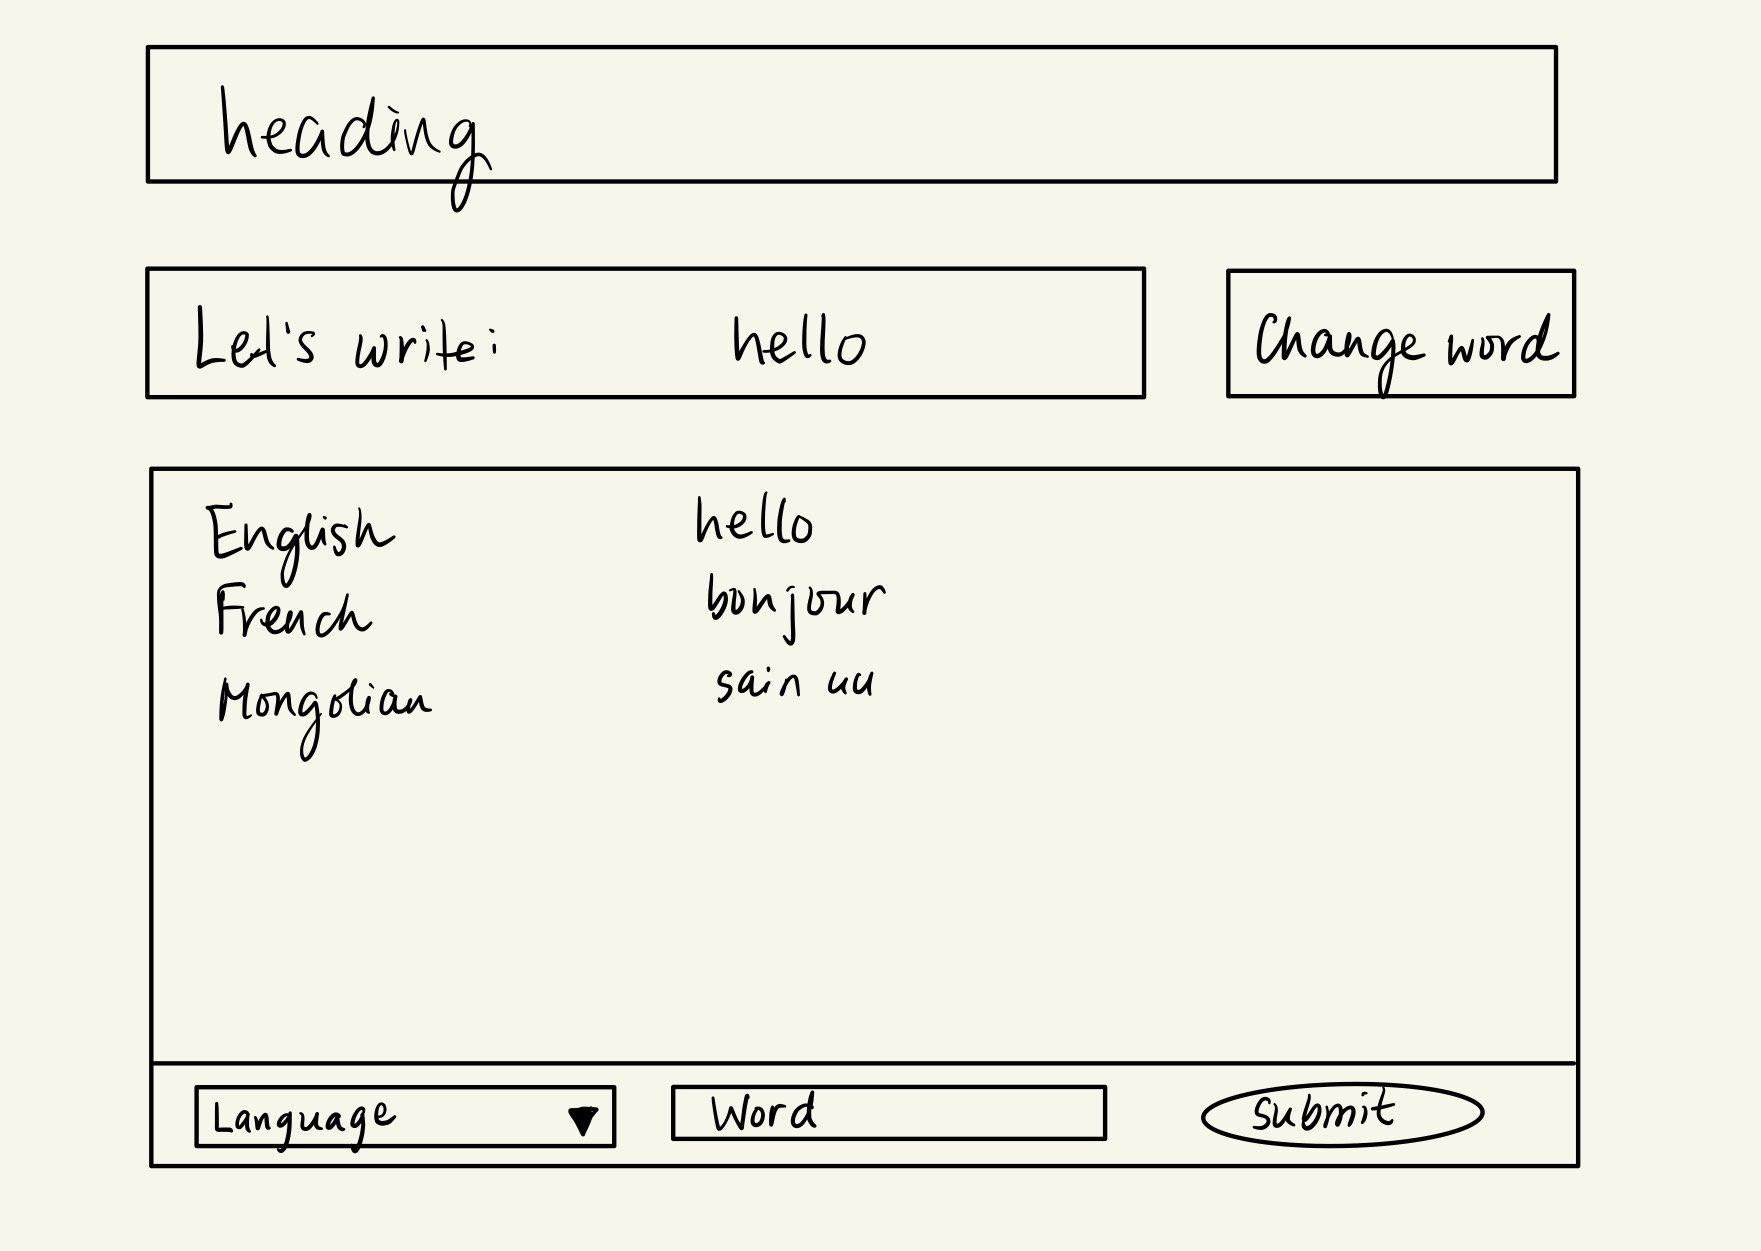 heading
Let's write: hello
Change word
English hello
French bonjour
Mongolian sain uu
Language Word submit